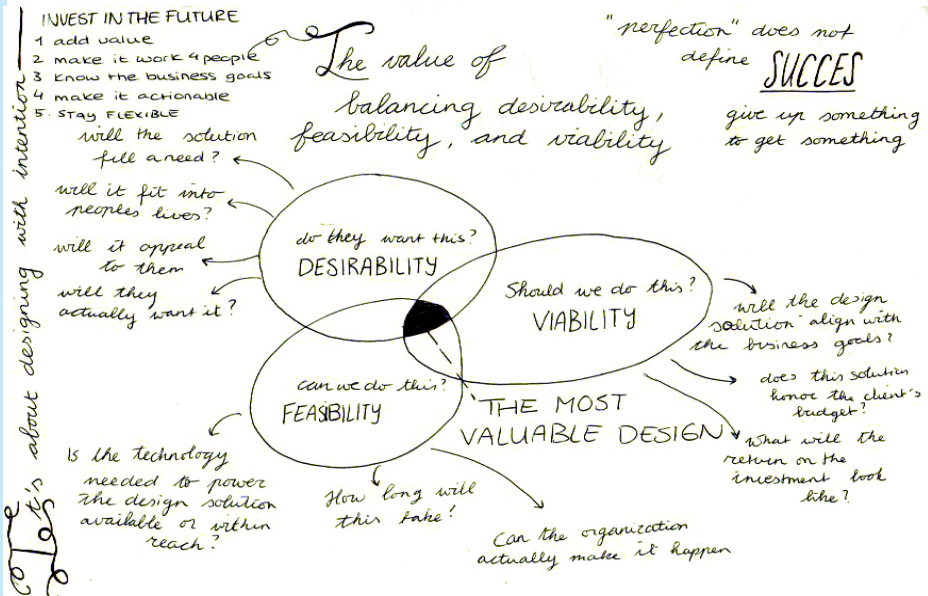 INVEST IN THE FUTURE
1 add value
2 make it work 4 people
3 know the business goals
4 make it actionable
5. STAY FLEXIBLE
The value of
balancing desirability,
feasibility, and viability
"perfection" does not
define SUCCES
give up something
to get something
will the solution
fill a need?
will it fit into
peoples lives?
will it appeal
to them
will they
actually want it?
do they want this?
DESIRABILITY
Should we do this?
VIABILITY
can we do this?
FEASIBILITY
THE MOST
VALUABLE DESIGN
will the design
solution align with
the business goals?
does this solution
honor the client's
budget?
what will the
return on the
investment look
like?
Is the technology
needed to power
the design solution
available or within
reach?
How long will
this take!
Can the organization
actually make it happen
It's about designing with intention